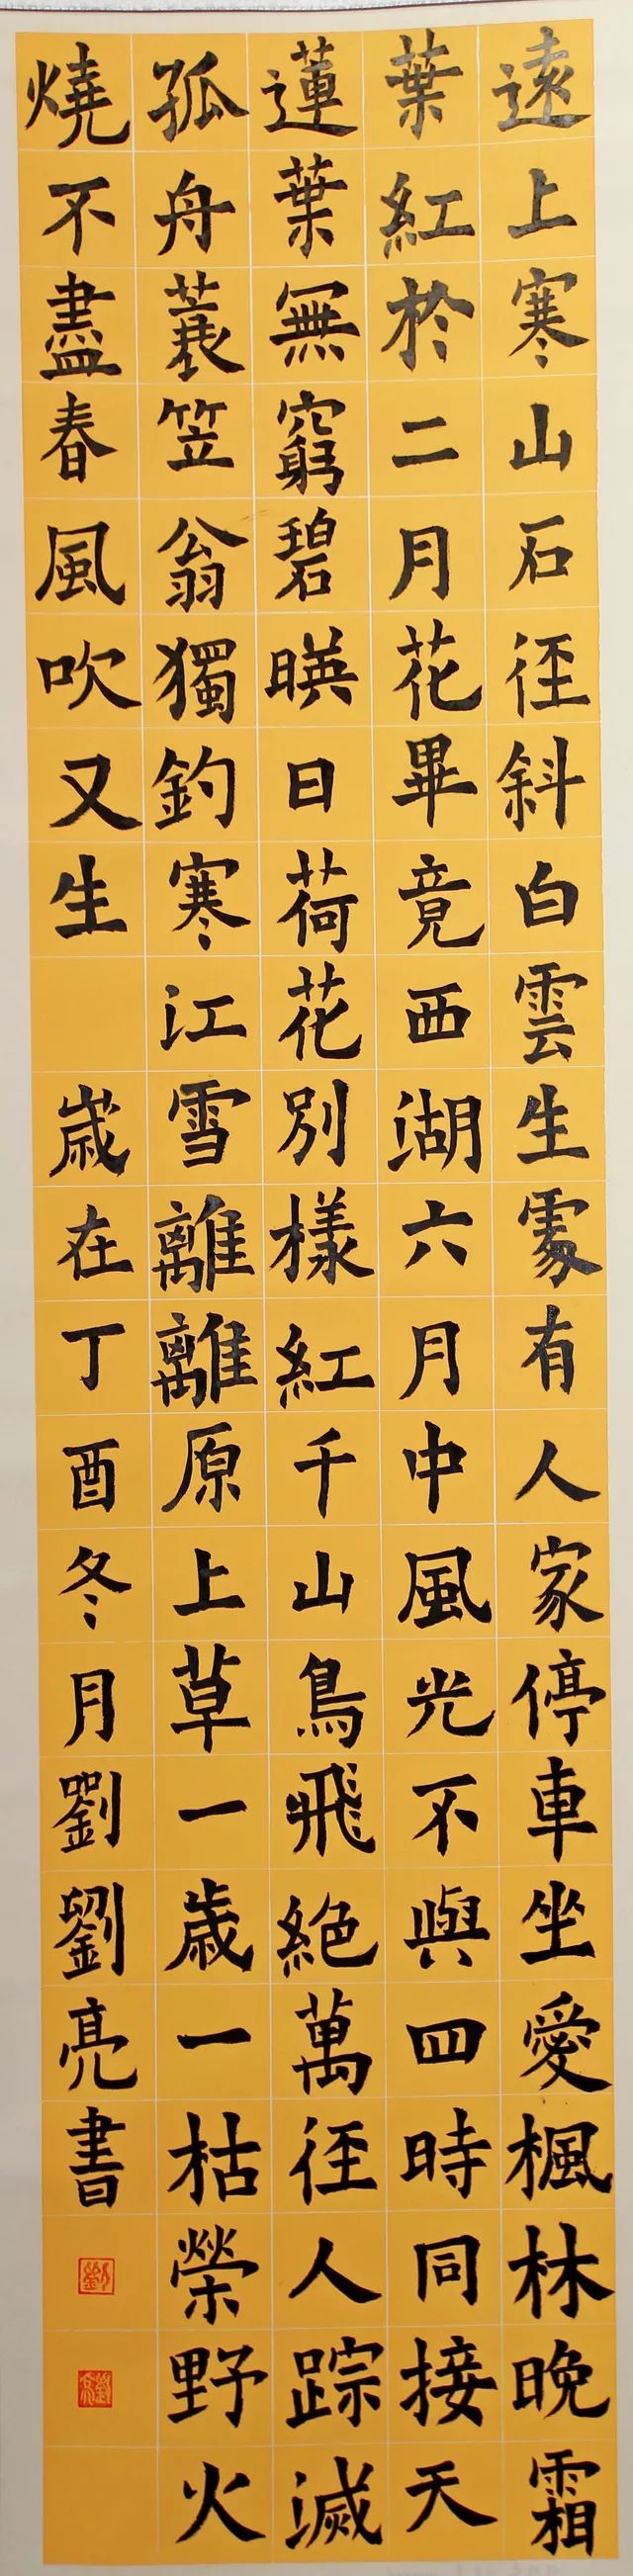 遠上寒山石徑斜白雲生處有人家停車坐愛楓林晚霜
葉紅於二月花畢竟西湖六月中風光不與四時同接天
蓮葉無窮碧暎日荷花別樣紅千山鳥飛絕萬徑人踪滅
孤舟蓑笠翁獨釣寒江雪離離原上草一歲一枯榮野火
燒不盡春風吹又生
歲在丁酉冬月劉劉亮書
劉
劉亮